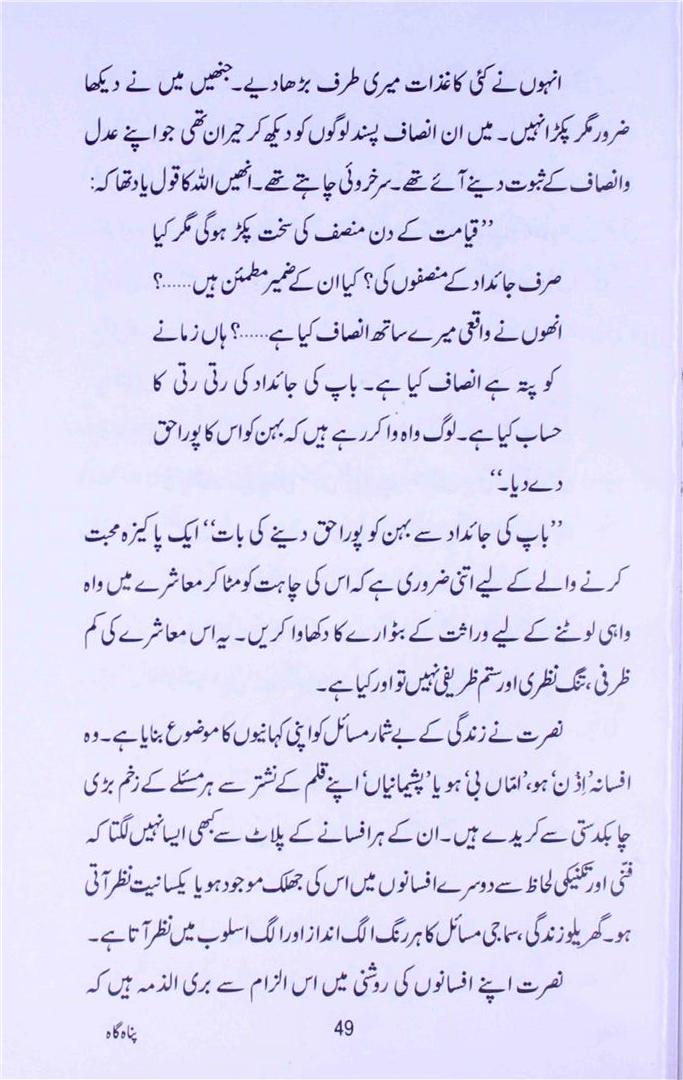 انہوں نے کئی کاغذات میری طرف بڑھادیے۔ جنھیں میں نے دیکھا
ضرور مگر پکڑا نہیں۔ میں ان انصاف پسند لوگوں کو دیکھ کر حیران تھی جو اپنے عدل
وانصاف کے ثبوت دینے آئے تھے۔ سرخروئی چاہتے تھے۔ انھیں اللہ کا قول یاد تھا کہ:
’’قیامت کے دن منصف کی سخت پکڑ ہوگی مگر کیا
صرف جائداد کے منصفوں کی؟ کیا ان کے ضمیر مطمئن ہیں.....؟
انھوں نے واقعی میرے ساتھ انصاف کیا ہے.....؟ ہاں زمانے
کو پتہ ہے انصاف کیا ہے۔ باپ کی جائداد کی رتی رتی کا
حساب کیا ہے۔ لوگ واہ وا کر رہے ہیں کہ بہن کو اس کا پورا حق
دے دیا۔‘‘
’’باپ کی جائداد سے بہن کو پورا حق دینے کی بات‘‘ ایک پاکیزہ محبت
کرنے والے کے لیے اتنی ضروری ہے کہ اس کی چاہت کو مٹا کر معاشرے میں واہ
واہی لوٹنے کے لیے وراثت کے بٹوارے کا دکھاوا کریں۔ یہ اس معاشرے کی کم
ظرفی، تنگ نظری اور ستم ظریفی نہیں تو اور کیا ہے۔
نصرت نے زندگی کے بے شمار مسائل کو اپنی کہانیوں کا موضوع بنایا ہے۔ وہ
افسانہ ’اِذْن‘ ہو، ’امّاں بی‘ ہو یا ’پشیمانیاں‘ اپنے قلم کے نشتر سے ہر مسئلے کے زخم بڑی
چابکدستی سے کریدے ہیں۔ ان کے ہر افسانے کے پلاٹ سے کبھی ایسا نہیں لگتا کہ
فنّی اور تکنیکی لحاظ سے دوسرے افسانوں میں اس کی جھلک موجود ہو یا یکسانیت نظر آتی
ہو۔ گھریلو زندگی، سماجی مسائل کا ہر رنگ الگ انداز اور الگ اسلوب میں نظر آتا ہے۔
نصرت اپنے افسانوں کی روشنی میں اس الزام سے بری الذمہ ہیں کہ
49
پناہ گاہ